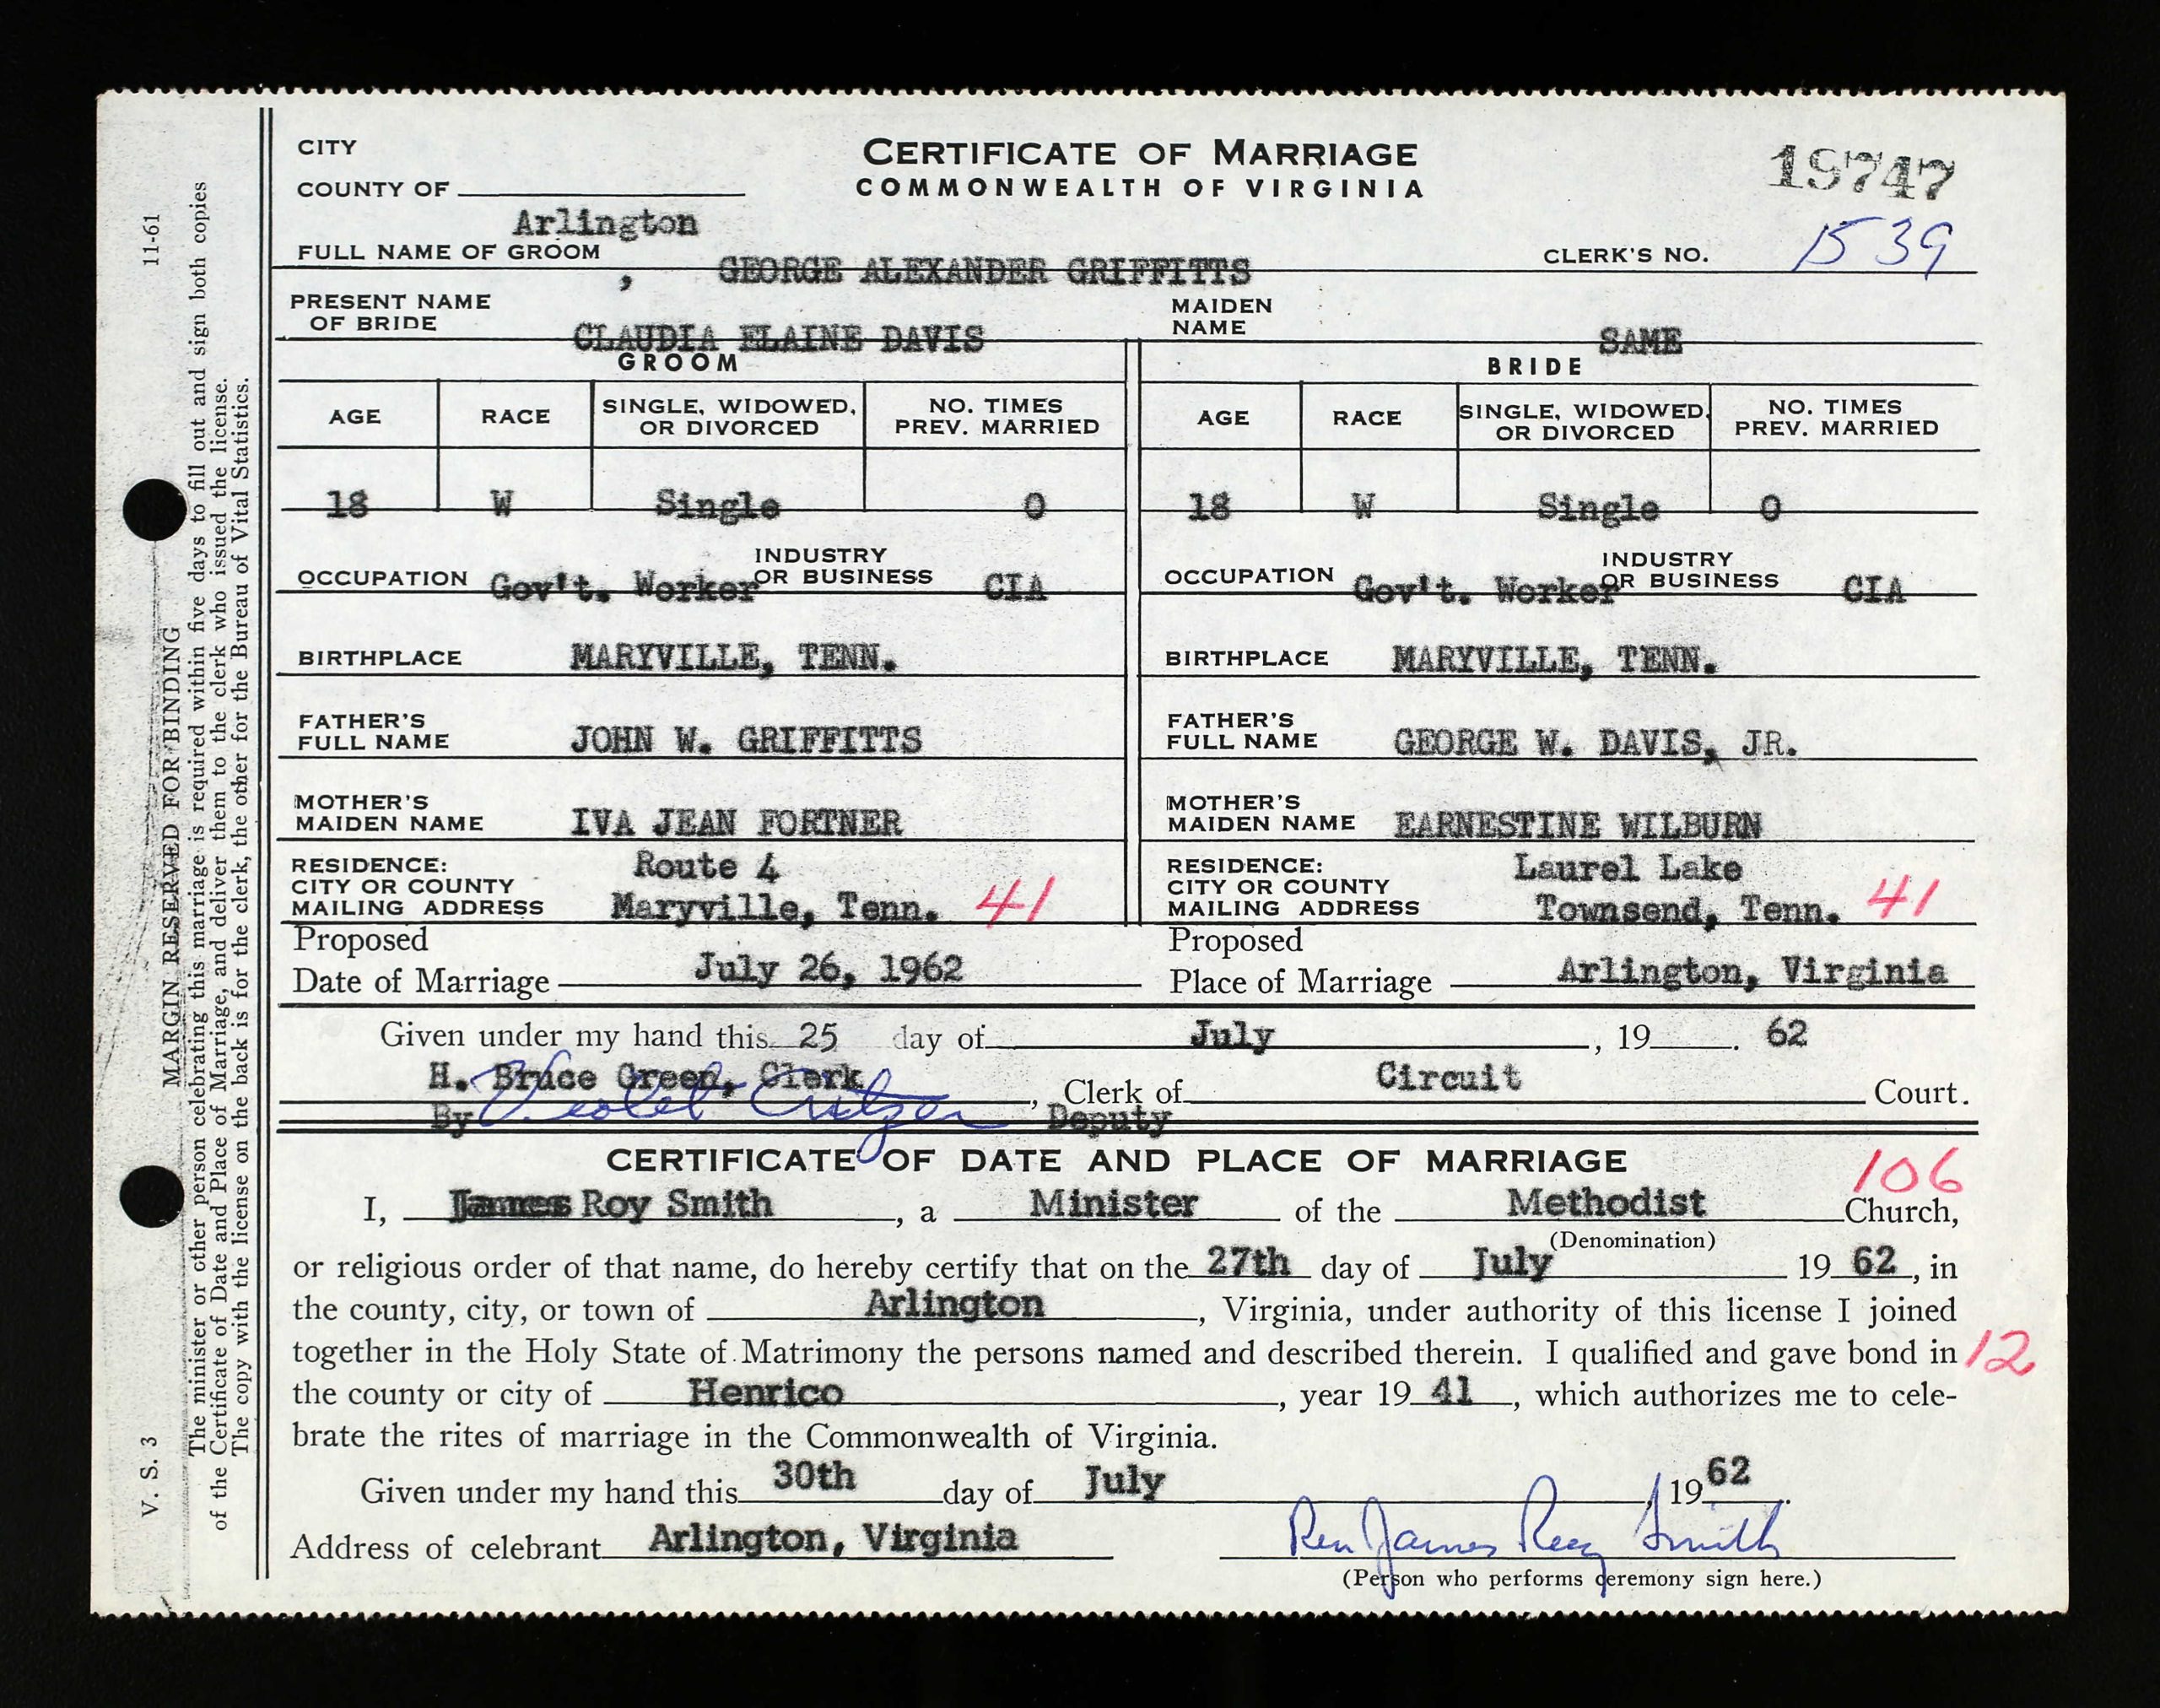 CITY
COUNTY OF
Arlington
CERTIFICATE OF MARRIAGE
COMMONWEALTH OF VIRGINIA
19747
FULL NAME OF GROOM , GEORGE ALEXANDER GRIFFITTS CLERK'S NO. 1539
PRESENT NAME
OF BRIDE CLAUDIA ELAINE DAVIS
MAIDEN
NAME SAME
GROOM BRIDE
AGE RACE SINGLE, WIDOWED, OR DIVORCED NO. TIMES PREV. MARRIED AGE RACE SINGLE, WIDOWED, OR DIVORCED NO. TIMES PREV. MARRIED
18 W Single 0 18 W Single 0
OCCUPATION Gov't. Worker INDUSTRY OR BUSINESS CIA OCCUPATION Gov't. Worker INDUSTRY OR BUSINESS CIA
BIRTHPLACE MARYVILLE, TENN. BIRTHPLACE MARYVILLE, TENN.
FATHER'S FULL NAME JOHN W. GRIFFITTS FATHER'S FULL NAME GEORGE W. DAVIS, JR.
MOTHER'S MAIDEN NAME IVA JEAN FORTNER MOTHER'S MAIDEN NAME EARNESTINE WILBURN
RESIDENCE: Route 4 RESIDENCE: Laurel Lake
CITY OR COUNTY CITY OR COUNTY
MAILING ADDRESS Maryville, Tenn. 41 MAILING ADDRESS Townsend, Tenn. 41
Proposed Proposed
Date of Marriage July 26, 1962 Place of Marriage Arlington, Virginia
Given under my hand this 25 day of July, 19 . 62
H. Bruce Green, Clerk, Clerk of Circuit Court.
By Violet Critzer Deputy
CERTIFICATE OF DATE AND PLACE OF MARRIAGE
106
I, James Roy Smith, a Minister of the Methodist Church,
(Denomination)
or religious order of that name, do hereby certify that on the 27th day of July 19 62, in
the county, city, or town of Arlington, Virginia, under authority of this license I joined
together in the Holy State of Matrimony the persons named and described therein. I qualified and gave bond in 12
the county or city of Henrico, year 19 41, which authorizes me to cele-
brate the rites of marriage in the Commonwealth of Virginia.
Given under my hand this 30th day of July, 19 62.
Address of celebrant Arlington, Virginia Rev James Roy Smith
(Person who performs ceremony sign here.)
V. S. 3 MARGIN RESERVED FOR BINDING 11-61
The minister or other person celebrating this marriage is required within five days to fill out and sign both copies
of the Certificate of Date and Place of Marriage, and deliver them to the clerk who issued the license.
The copy with the license on the back is for the clerk, the other for the Bureau of Vital Statistics.